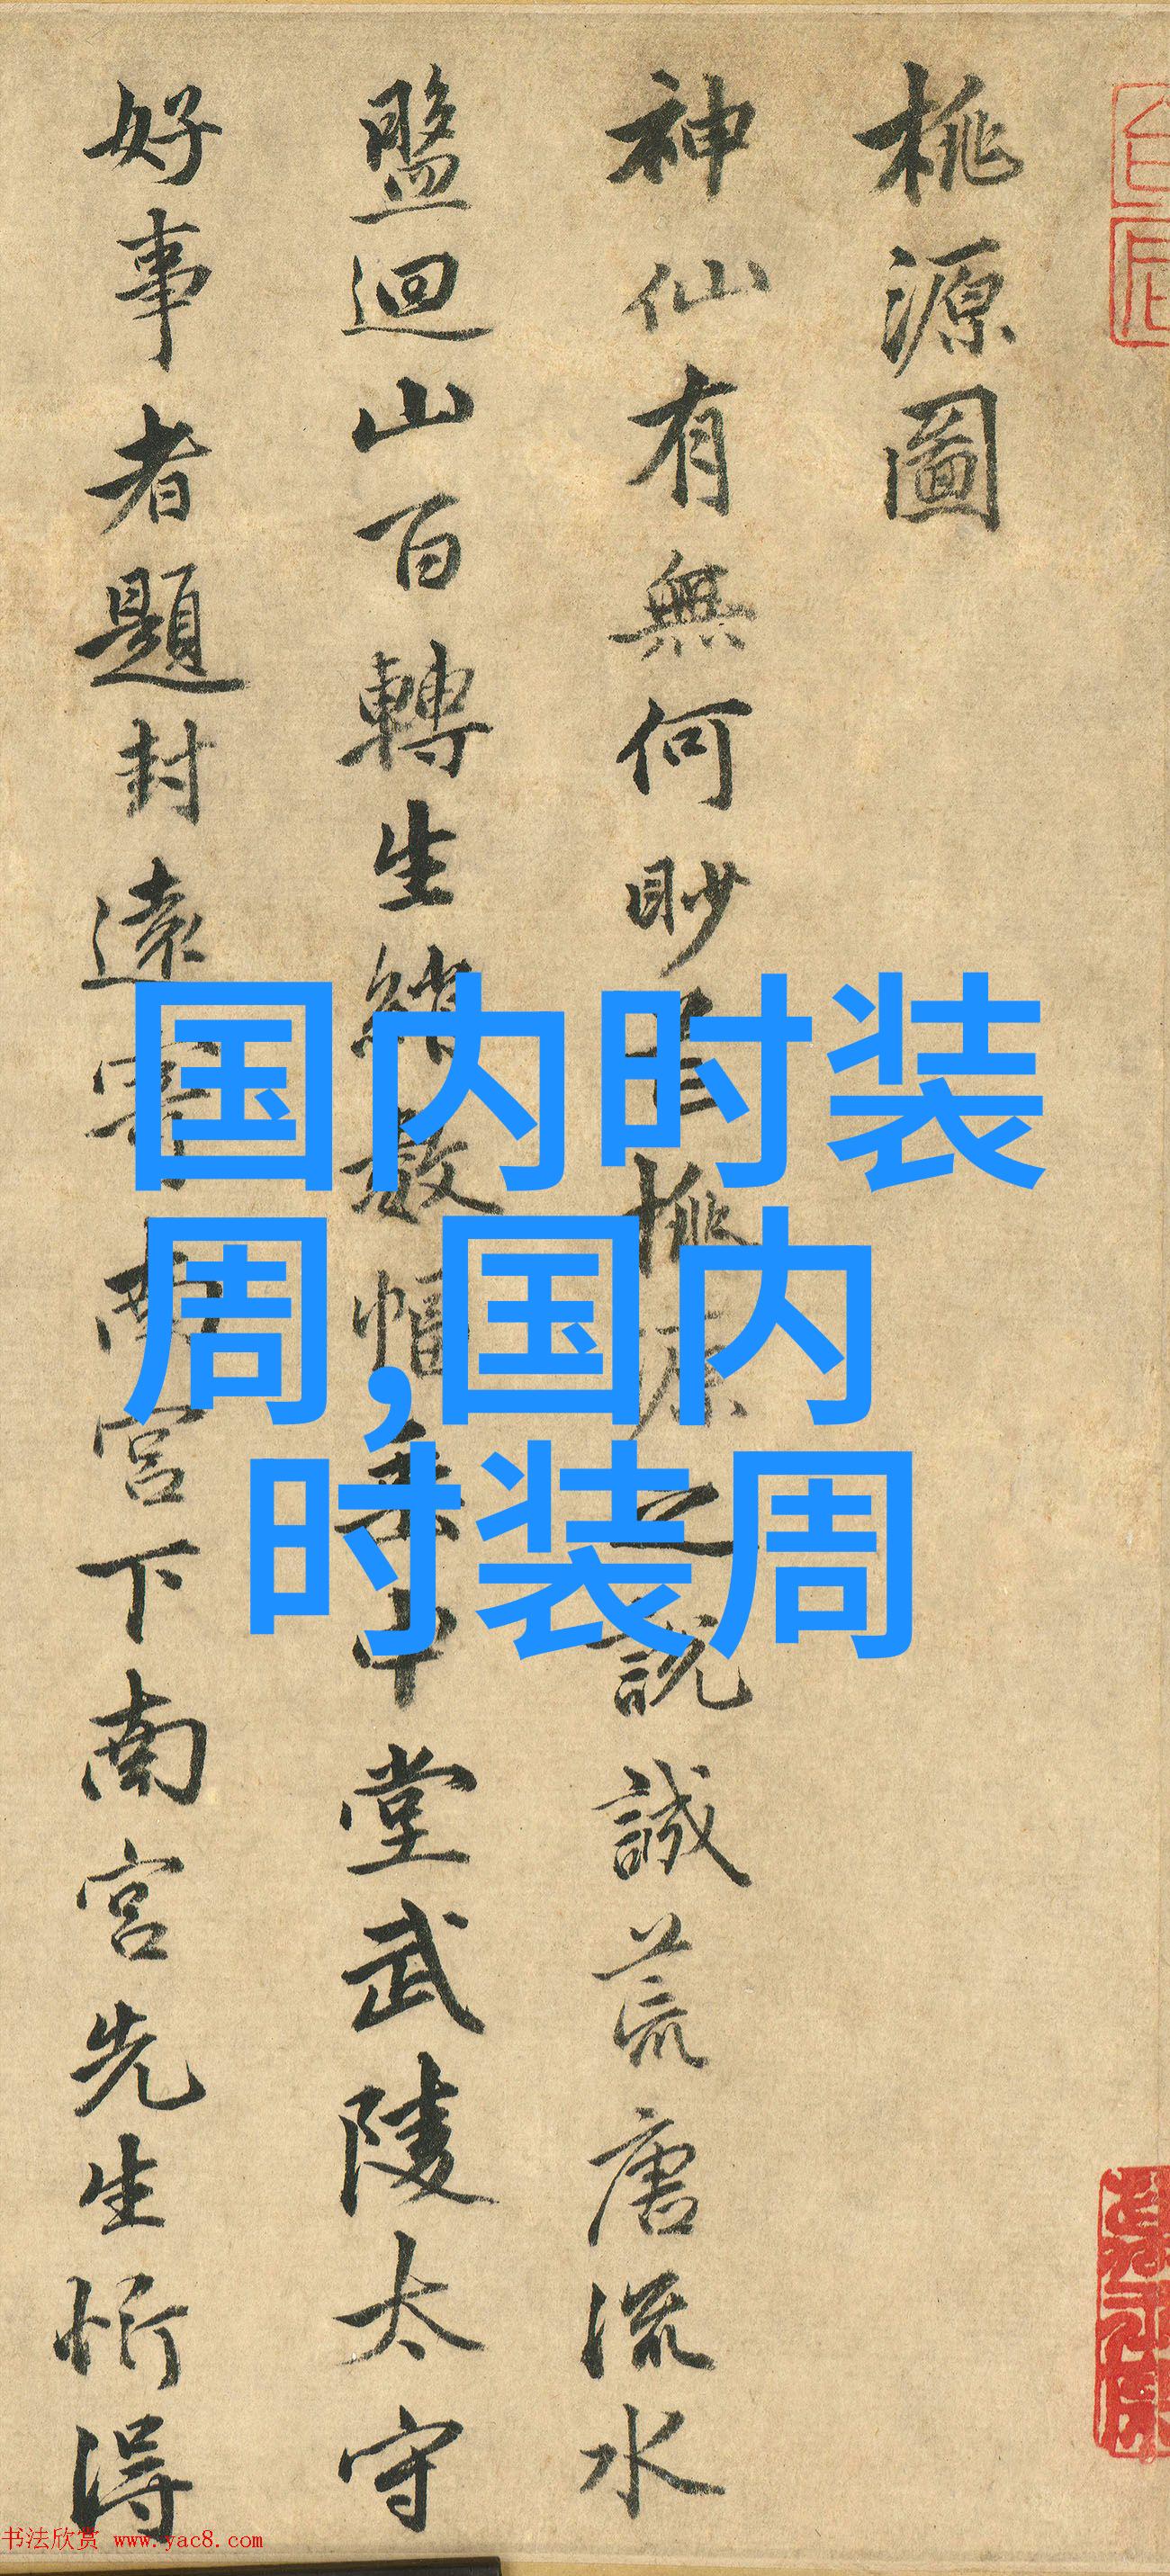 桃源圖
神仙有無何眇芒桃源之說誠荒唐流水
盤迴山百轉生綃數幅垂中堂武陵太守
好事者題封遠寄南宮下南宮先生忻得
国内时装
周,国内
时装周
书法欣赏 www.yac8.com